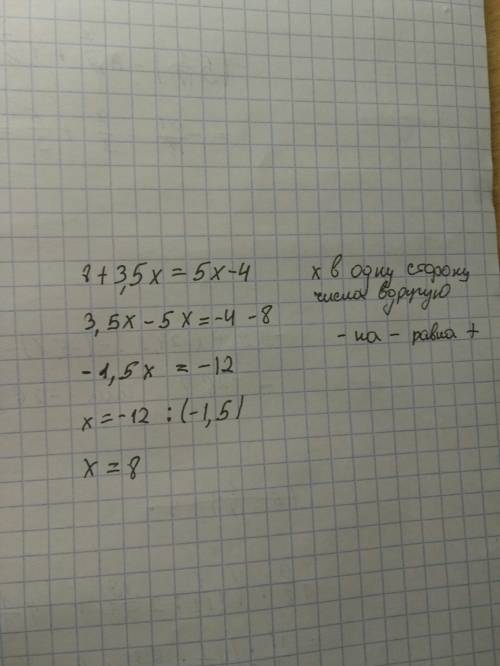 8 + 3,5x = 5x - 4
3,5x - 5x = -4 - 8
-1,5x = -12
x = -12 : (-1,5)
x = 8
x в одну сторону
числа в другую
- на - равна +